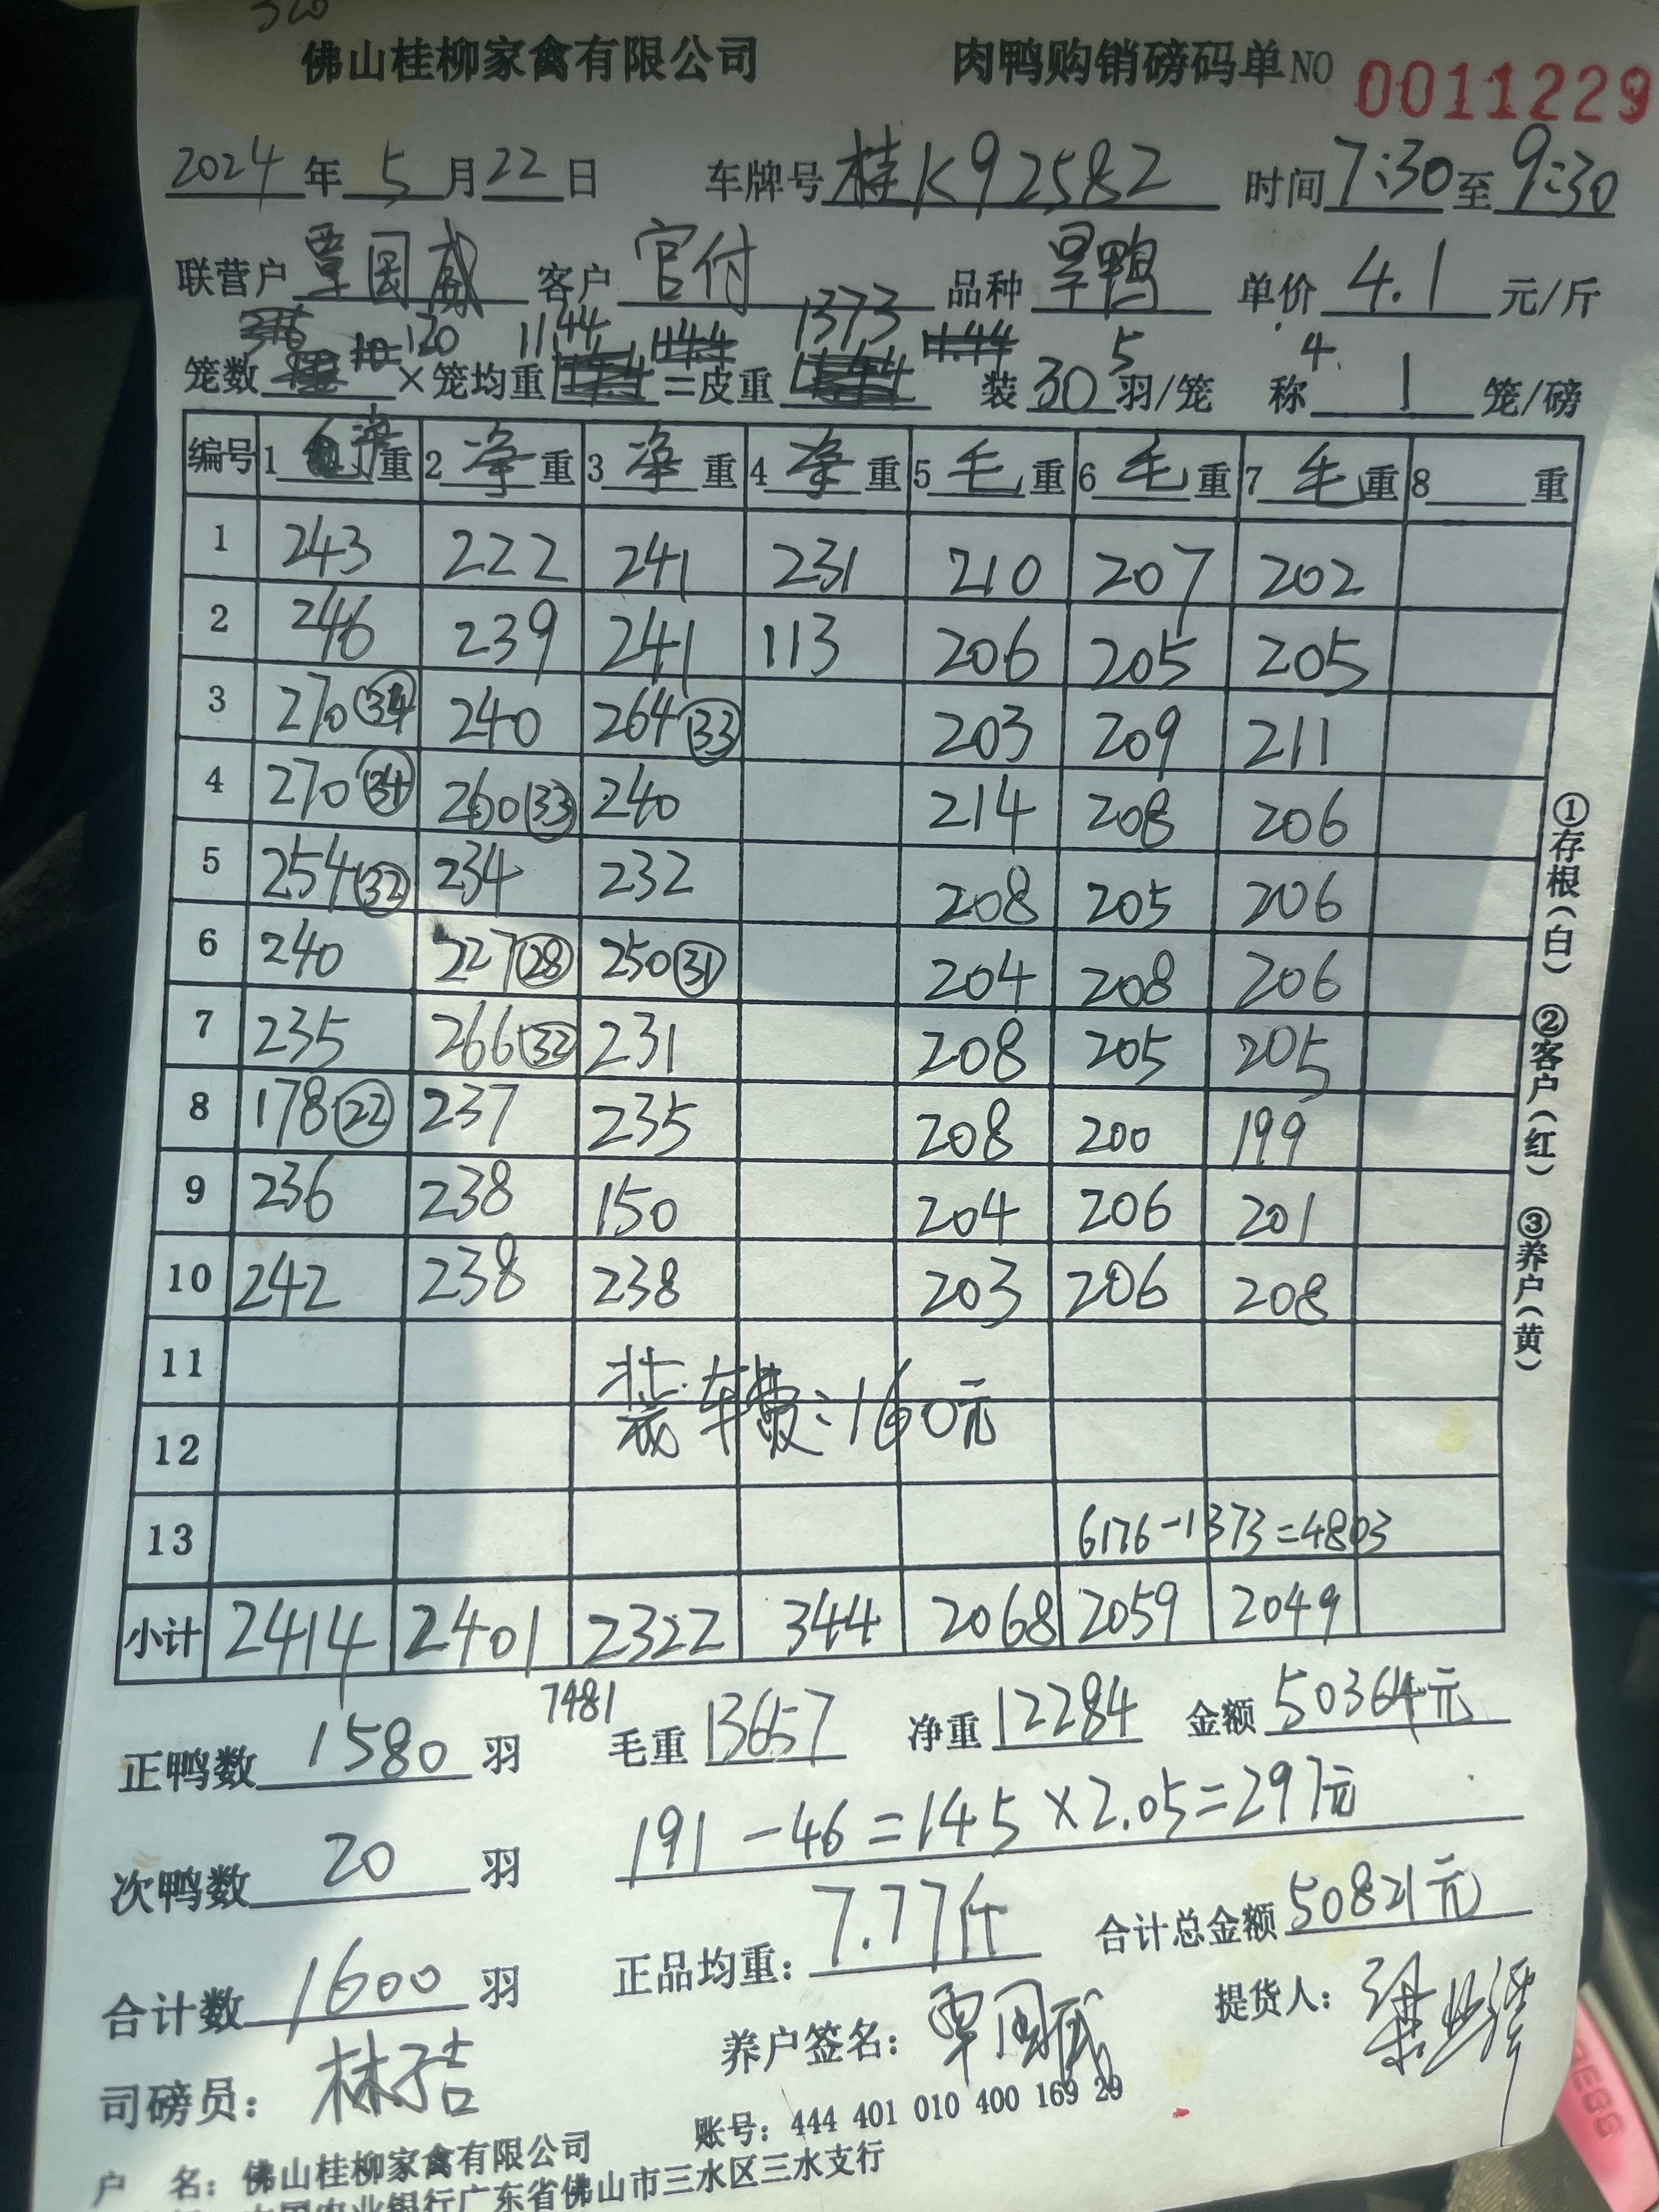 佛山桂柳家禽有限公司 肉鸭购销磅码单NO 0011229
2024年5月22日 车牌号桂K92582 时间7:30至9:30
联营户覃国威 客户官付 品种旱鸭 单价4.1元/斤
120 11.44 1373 5 4
笼数×笼均重=皮重 装30羽/笼 称1笼/磅
编号 1净重 2净重 3净重 4净重 5毛重 6毛重 7毛重 8重
1 243 222 241 231 210 207 202
2 246 239 241 113 206 205 205
3 270(34) 240 264(33) 203 209 211
4 270(34) 260(33) 240 214 208 206
5 254(32) 234 232 208 205 206
6 240 227(28) 250(31) 204 208 206
7 235 266(32) 231 208 205 205
8 178(22) 237 235 208 200 199
9 236 238 150 204 206 201
10 242 238 238 203 206 208
11
装车费:160元
12
13 6176-1373=4803
小计 2414 2401 2322 344 2068 2059 2049
7481
正鸭数1580羽 毛重13657 净重12284 金额50364元
次鸭数20羽 191-46=145×2.05=297元
合计数1600羽 正品均重:7.77斤 合计总金额50821元
司磅员: 养户签名:覃国威 提货人:
账号: 444 401 010 400 169 29
户 名: 佛山桂柳家禽有限公司
中国农业银行广东省佛山市三水区三水支行
①存根(白) ②客户(红) ③养户(黄)